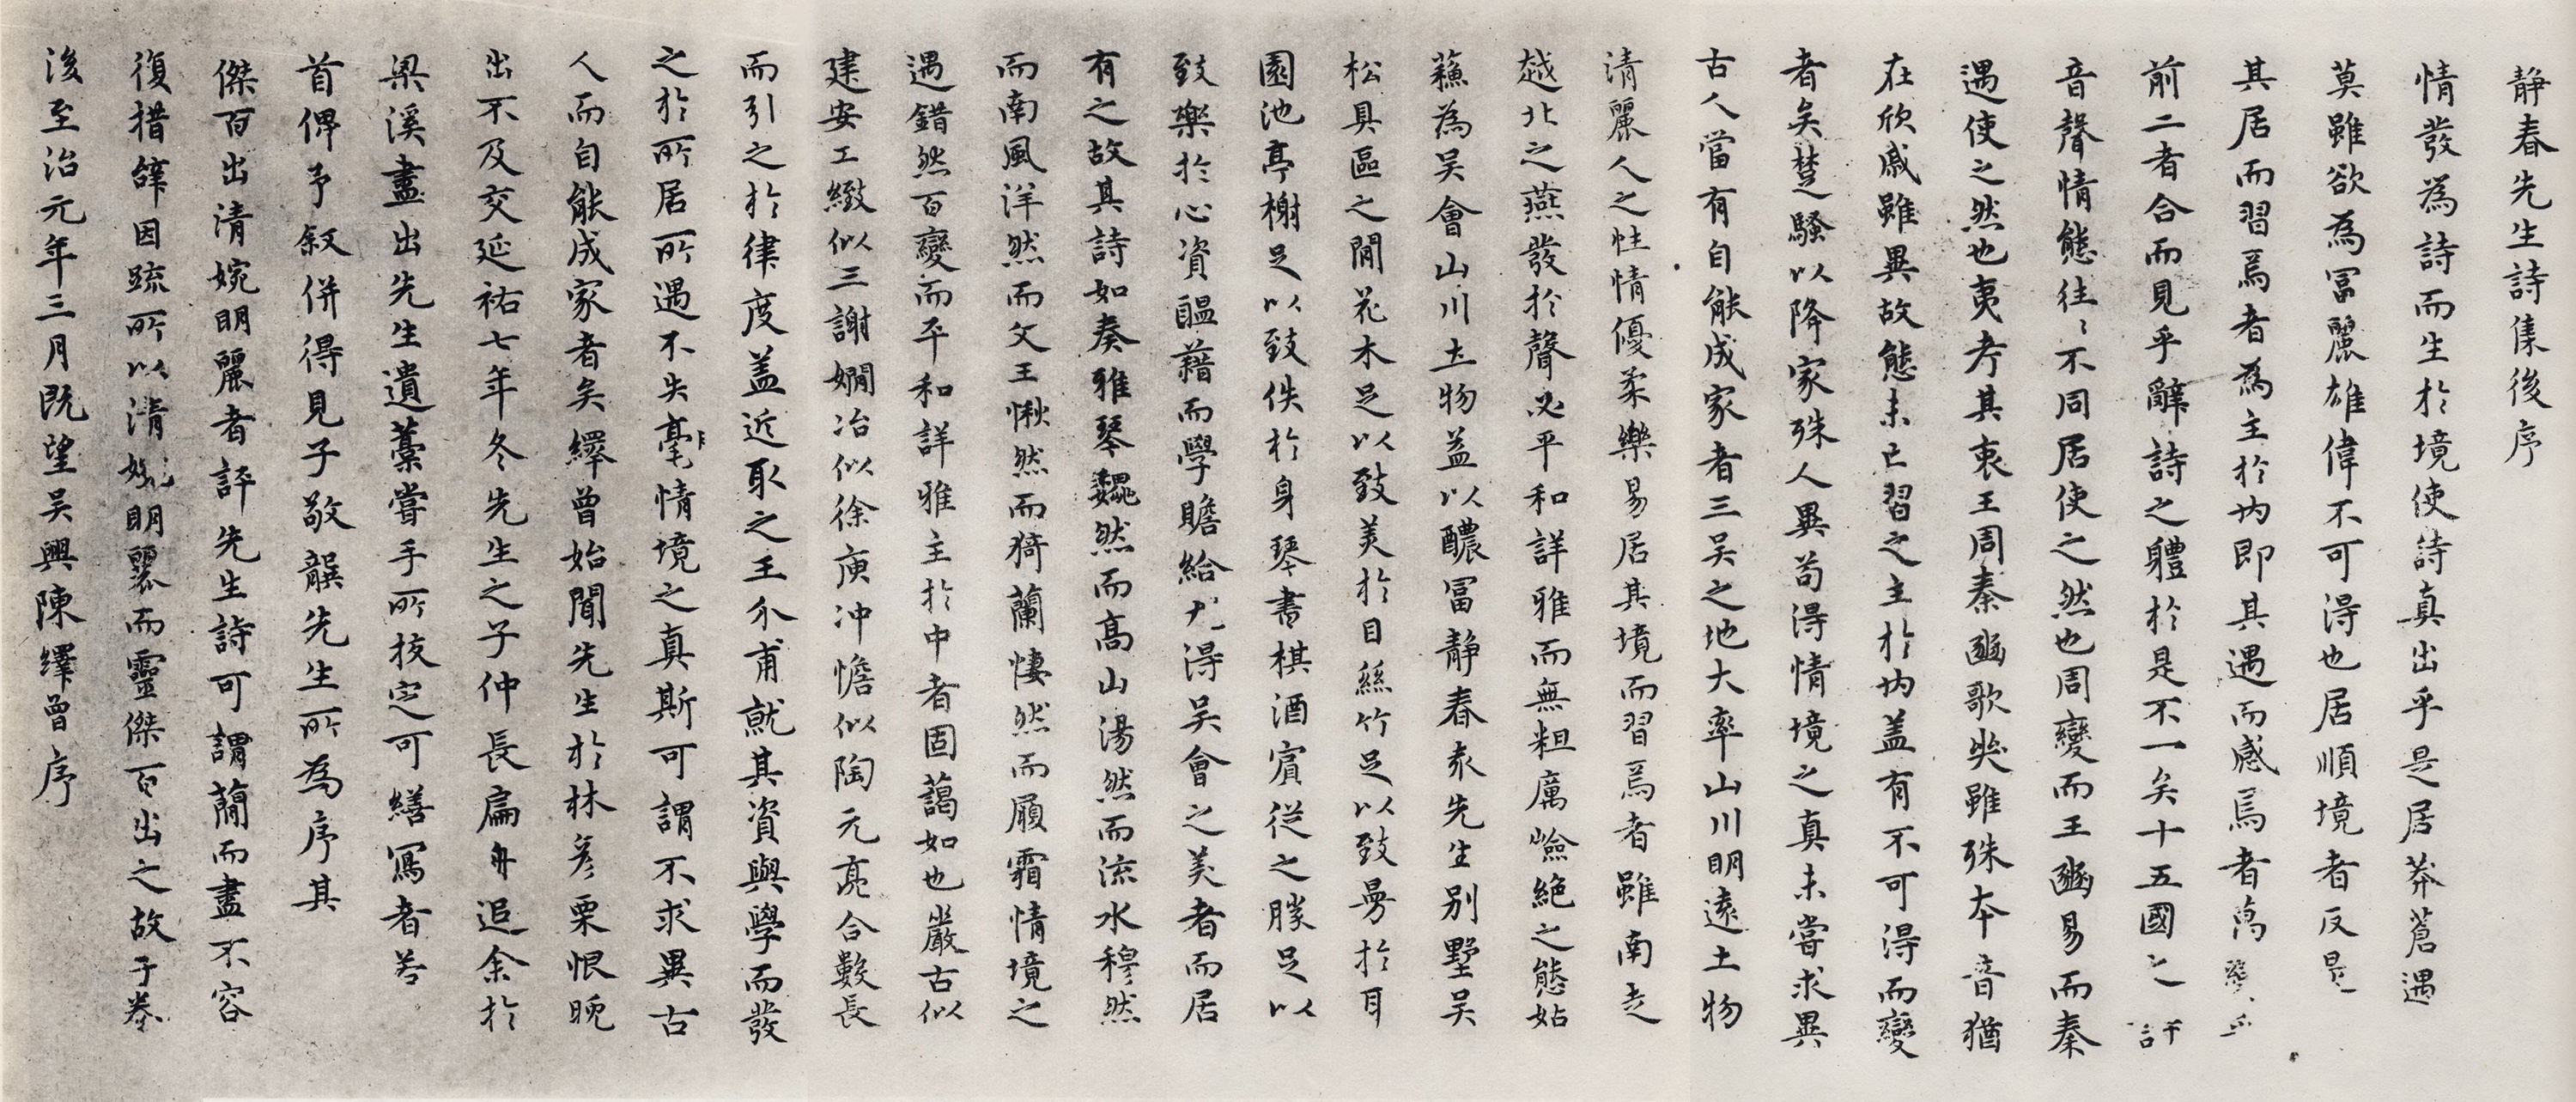 静春先生詩集後序
情發為詩而生於境使詩真出乎是居莽蒼遇
莫雖欲為冨麗雄偉不可得也居順境者反是
其居而習焉者為主於内即其遇而感焉者萬
前二者合而見乎辭詩之體於是不一矣十五國之
音聲情態往〻不同居使之然也周變而王豳易而秦
遇使之然也夷考其衷王周秦豳歌哭雖殊本音猶
在欣戚雖異故態未亡習之主於内盖有不可得而變
者矣楚騷以降家殊人異苟得情境之真未嘗求異
古人當有自能成家者三吴之地大率山川明遠土物
清麗人之性情優柔樂易居其境而習焉者雖南走
越北之燕發於聲必平和詳雅而無粗厲嶮絶之態姑
蘓為吴會山川土物益以醲冨静春袁先生别墅吴
松具區之間花木足以致美於目絲竹足以致曼於耳
園池亭榭足以致佚於身琴書棋酒賓從之勝足以
致樂於心資醖藉而學贍給尤得吴會之美者而居
有之故其詩如奏雅琴巍然而髙山湯然而流水穆然
而南風洋然而文王愀然而猗蘭悽然而履霜情境之
遇錯然百變而平和詳雅主於中者固藹如也嚴古似
建安工緻似三謝嫺冶似徐庾冲憺似陶元亮合數長
而引之於律度盖近取之王介甫就其資與學而發
之於所居所遇不失毫情境之真斯可謂不求異古
人而自能成家者矣繹曾始聞先生於林彦栗恨晩
出不及交延祐七年冬先生之子仲長扁舟追余於
梁溪盡出先生遺藁嘗手所校定可繕寫者若
首俾予叙併得見子敬龔先生所為序其
傑百出清婉明麗者評先生詩可謂蕳而盡不容
復措辭因疏所以清婉明麗而靈傑百出之故于巻
後至治元年三月既望吴興陳繹曾序